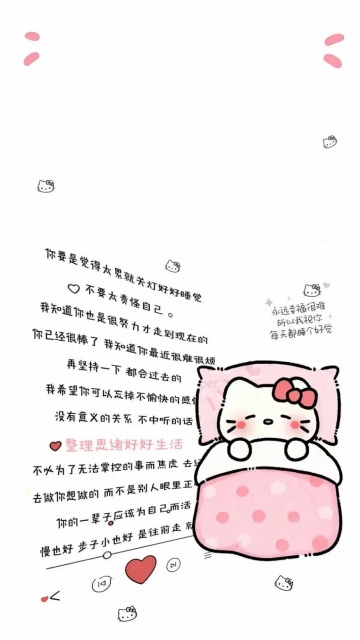 你要是觉得太累就关灯好好睡觉
不要太责怪自己。
我知道你也是很努力才走到现在的
你已经很棒了 我知道你最近很难很烦
再坚持一下 都会过去的
我希望你可以忘掉不愉快的感情
没有意义的关系 不中听的话
整理思绪好好生活
不必为了无法掌控的事而焦虑 去
去做你想做的 而不是别人眼里正
你的一辈子应该为自己而活
慢也好 步子小也好 是往前走
永远幸福很难
所以我祝你
每天都睡个好觉